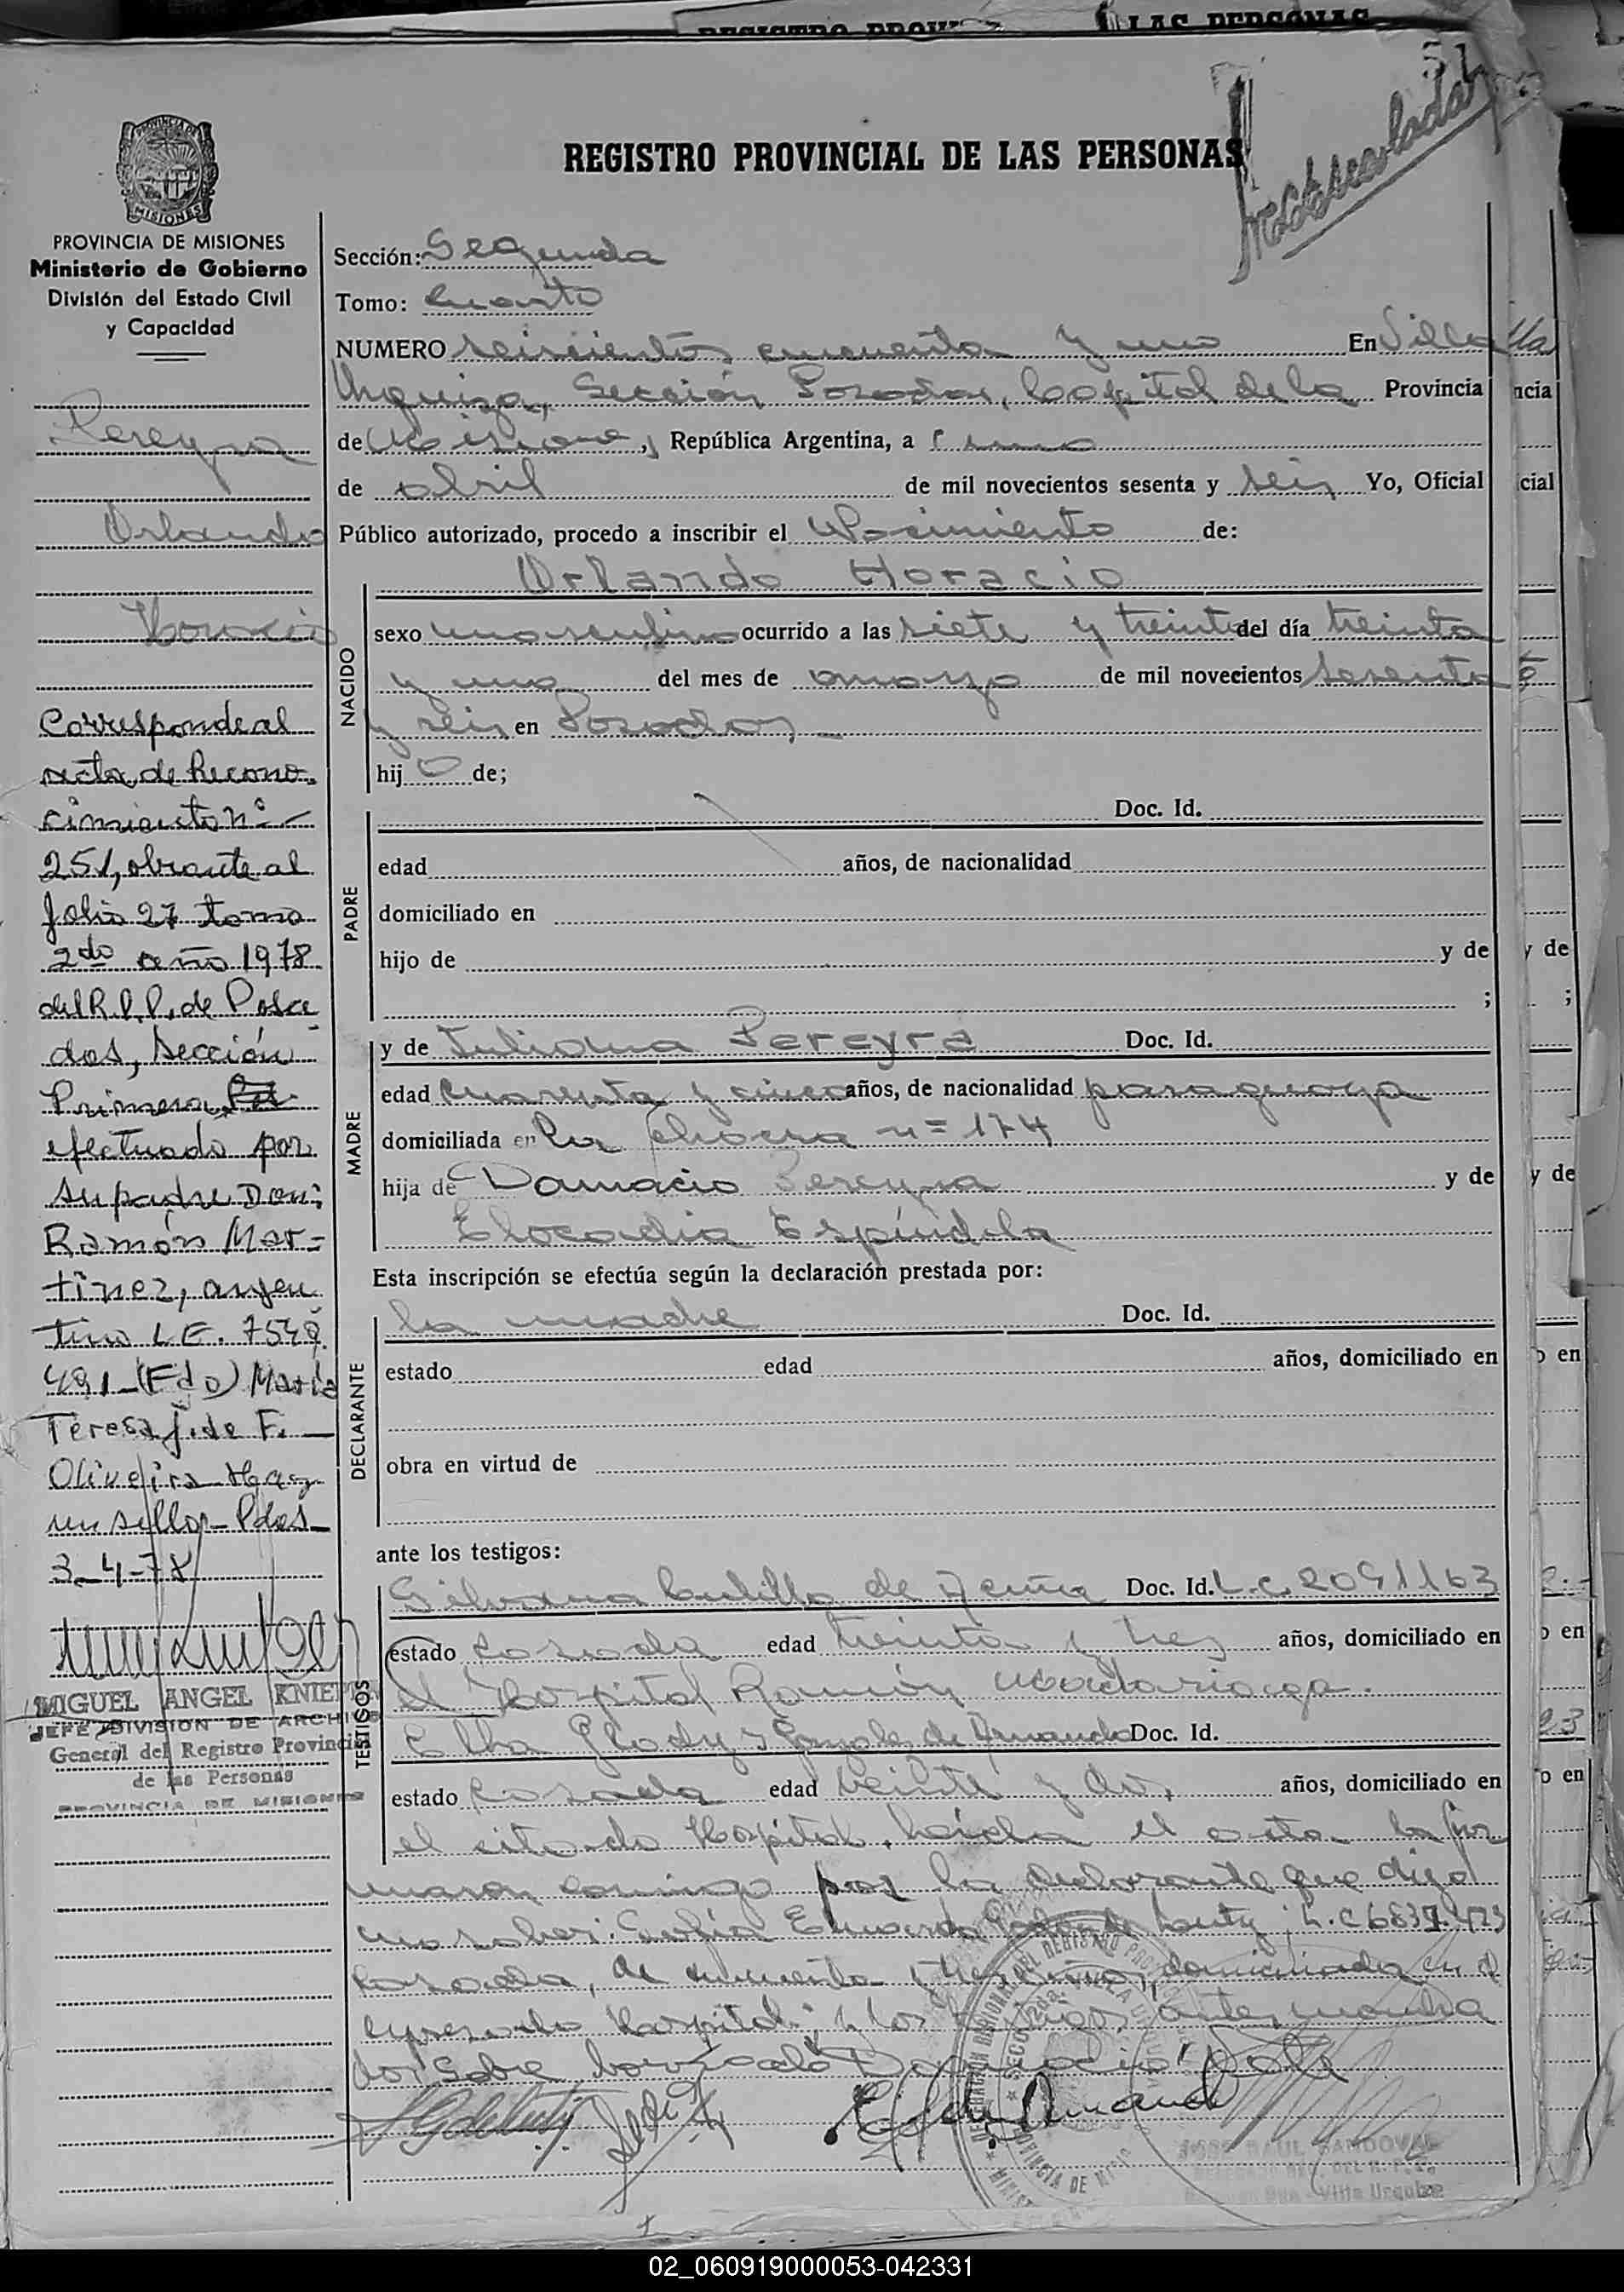 51
REGISTRO PROVINCIAL DE LAS PERSONAS
PROVINCIA DE MISIONES
Ministerio de Gobierno
División del Estado Civil
y Capacidad
Pereyra
Orlando
Horacio
Corresponde al
acta de Recono-
cimiento nº
251, obrante al
folio 27 tomo
2do año 1978
del R.P.P. de Posa
das, Sección
Primera
efectuado por
su padre Don:
Ramón Mar=
tínez, argen
tino L.E. 7549
491_(Fdo) María
Teresa J. de F.
Oliveira Hay
un sello_Pdas_
3_4-78
MIGUEL ANGEL KNIE
JEFE DIVISION DE ARCHIVO
General del Registro Provincial
de las Personas
PROVINCIA DE MISIONES
Sección: Segunda
Tomo: Cuarto
NUMERO seiscientos cincuenta y uno En Villa
Urquiza, Sección Posadas, Capital de la Provincia
de Misiones, República Argentina, a uno
de abril de mil novecientos sesenta y seis Yo, Oficial
Público autorizado, procedo a inscribir el Nacimiento de:
Orlando Horacio
NACIDO
sexo masculino ocurrido a las siete y treinta del día treinta
y uno del mes de marzo de mil novecientos sesenta
y seis en Posadas
hijo de;
PADRE
Doc. Id.
edad años, de nacionalidad
domiciliado en
hijo de y de
;
MADRE
y de Juliana Pereyra Doc. Id.
edad cuarenta y cinco años, de nacionalidad paraguaya
domiciliada en La Chacra n= 174
hija de Damacio Pereyra y de
Elocadia Espíndola
Esta inscripción se efectúa según la declaración prestada por:
DECLARANTE
la madre Doc. Id.
estado edad años, domiciliado en
obra en virtud de
ante los testigos:
TESTIGOS
Silvana de Doc. Id. L.C. 2091163
estado casada edad treinta y tres años, domiciliado en
el Hospital Ramón Madariaga.
Elba Gladys Gonzales de Amanda Doc. Id.
estado casada edad veinte y dos, años, domiciliado en
el citado Hospital. Leída el acta la fir
maron conmigo por la declarante que dijo
no saber: Sofía de L.C 6837.423
casada, de cincuenta y tres años, domiciliada en el
expresado Hospital; y los testigos antes menciona
dos. Sobre borrado Damacio: Vale
JOSE RAUL SANDOVAL
Villa Urquiza
02_060919000053-042331